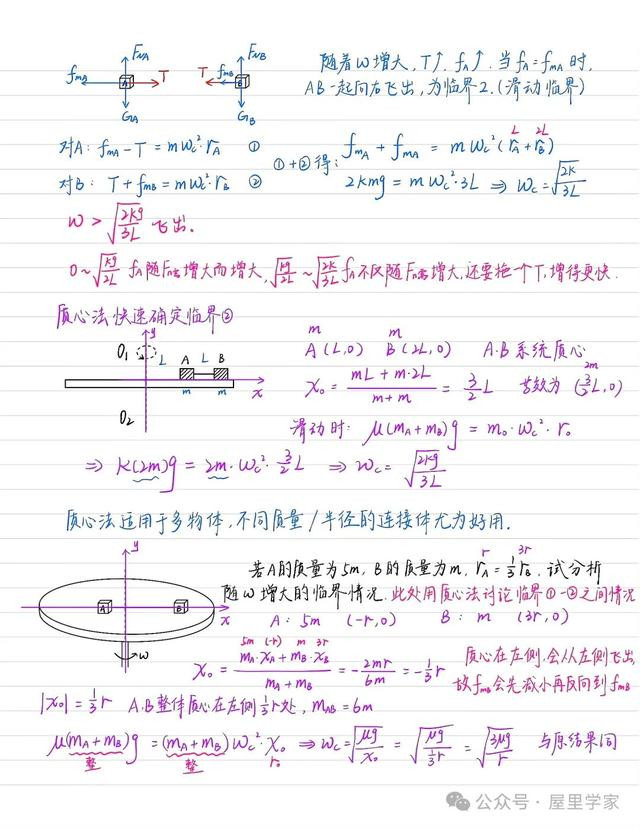 F_NA F_NB
f_mA A T T f_mB B
G_A G_B
随着ω增大, T↑, f_A↑. 当f_A = f_mA 时,
AB一起向右飞出, 为临界2.(滑动临界)
对A: f_mA - T = mω_c²·r_A ①
对B: T + f_mB = mω_c²·r_B ②
L 2L
①+②得: f_mA + f_mA = mω_c²(r_A + r_B)
2kmg = mω_c²·3L ⇒ ω_c = √(2k/3L)
ω > √(2kg/3L) 飞出.
0~√(kg/2L) f_A随F_n需增大而增大, √(kg/2L) ~ √(2k/3L) f_A不仅随F_n需增大, 还要拖一个T, 增得更快.
质心法快速确定临界②
y
O₁ L A L B
m m x
O₂
m m
A(L,0) B(2L,0) A.B系统质心
x₀ = (mL + m·2L)/(m+m) = 3/2 L 等效为 2m (3/2 L, 0)
滑动时: μ(m_A + m_B)g = m₀·ω_c²·r₀
⇒ k(2m)g = 2m·ω_c²·3/2 L ⇒ ω_c = √(2kg/3L)
质心法适用于多物体, 不同质量/半径的连接体尤为好用.
y
A B
x
ω
r 3r
若A的质量为5m, B的质量为m, r_A = 1/3 r_B, 试分析
随ω增大的临界情况. 此处用质心法讨论临界①-②之间情况
A: 5m (-r,0) B: m (3r,0)
5m (-r) m 3r
x₀ = (m_A·x_A + m_B·x_B)/(m_A + m_B) = -2mr/6m = -1/3 r
质心在左侧, 会从左侧飞出
故f_mB会先减小再反向到f_mB
|x₀| = 1/3 r A.B整体质心在左侧1/3 r处, m_AB = 6m
μ(m_A + m_B)g = (m_A + m_B)ω_c²·x₀ ⇒ ω_c = √(μg/x₀) = √(μg/(1/3 r)) = √(3μg/r) 与原结果同
整 整 r₀
公众号 · 屋里学家